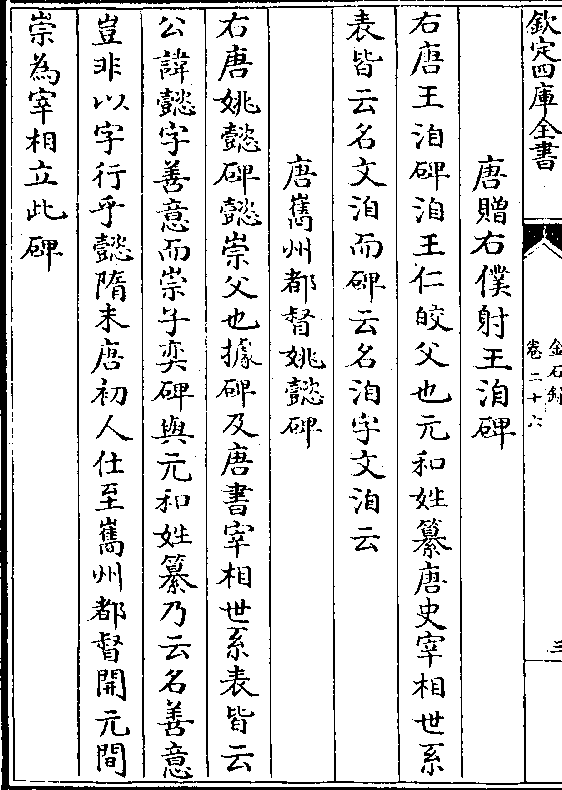 欽定四庫全書
金石錄
卷二十六
三
唐贈右僕射王洎碑
右唐王洎碑洎王仁皎父也元和姓纂唐史宰相世系
表皆云名文洎而碑云名洎字文洎云
唐嶲州都督姚懿碑
右唐姚懿碑懿崇父也據碑及唐書宰相世系表皆云
公諱懿字善意而崇子奕碑與元和姓纂乃云名善意
豈非以字行乎懿隋末唐初人仕至嶲州都督開元間
崇為宰相立此碑